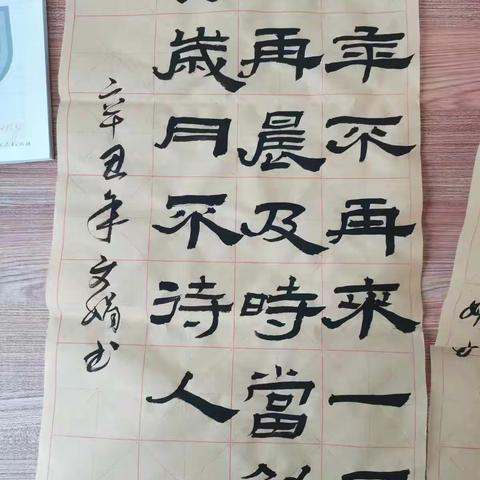 年不再來一
再晨及時當
歲月不待人
辛丑年文娟书